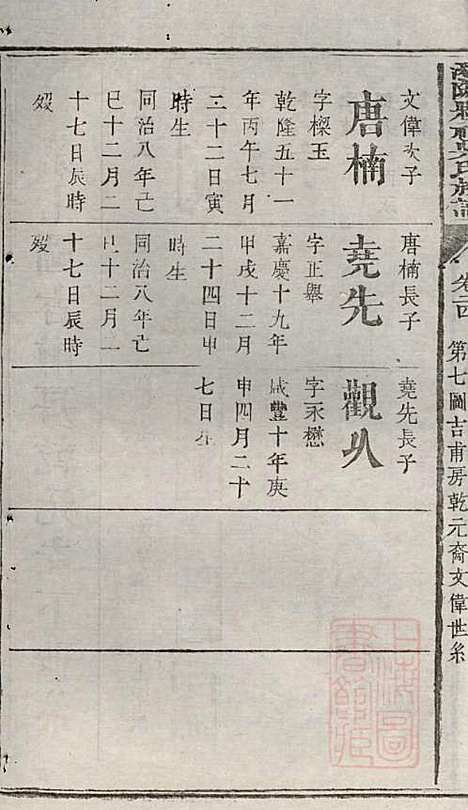 卷六
第七圖吉甫房乾元裔文偉世系
文偉次子
唐楠
字樑玉
乾隆五十一
年丙午七月
二十二日寅
時生
同治八年己
巳十二月二
十七日辰時
歿
唐楠長子
堯先
字正舉
嘉慶十九年
甲戌十二月
二十四日申
時生
同治八年己
巳十二月二
十七日辰時
歿
堯先長子
觀人
字永懋
咸豐十年庚
申四月二十
七日生
上海圖
書館藏